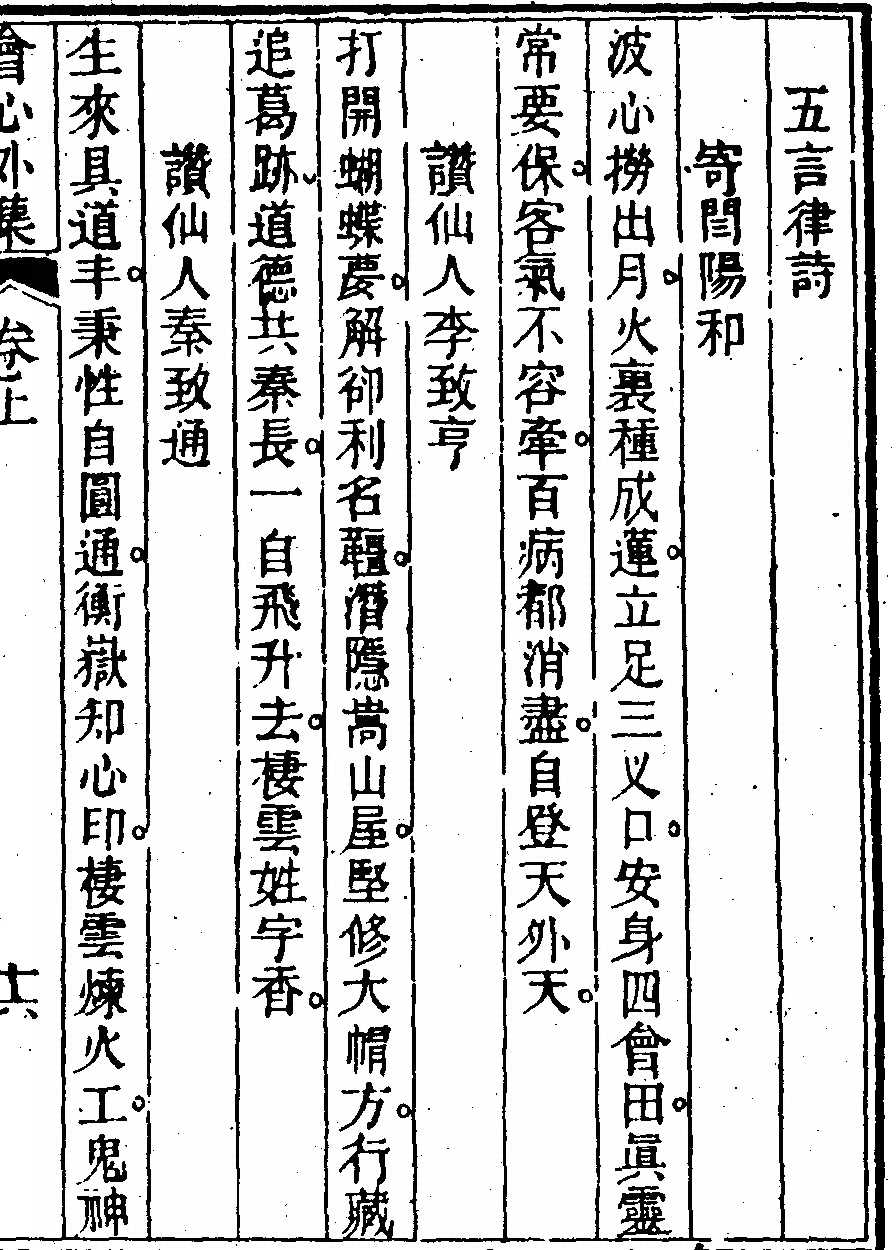 五言律詩
寄閆陽和
波心撈出月火裏種成蓮立足三义口安身四會田眞靈
常要保客氣不容牽百病都消盡自登天外天
讚仙人李致亨
打開蝴蝶夢解卻利名韁潛隱嵩山屋堅修大帽方行藏
追葛跡道德共秦長一自飛升去棲雲姓字香
讚仙人秦致通
生來具道丰秉性自圓通衡嶽知心印棲雲煉火工鬼神
會心外集 卷上 十六